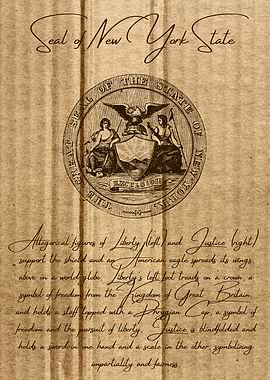 Seal of New York State
THE GREAT SEAL OF THE STATE OF NEW YORK
EXCELSIOR
Allegorical figures of Liberty (left) and Justice (right)
support the shield and an American eagle spreads its wings
above on a world globe. Liberty's left foot treads on a crown, a
symbol of freedom from the Kingdom of Great Britain,
and holds a staff topped with a Phrygian Cap, a symbol of
freedom and the pursuit of liberty. Justice is blindfolded and
holds a sword in one hand and a scale in the other, symbolizing
impartiality and fairness.